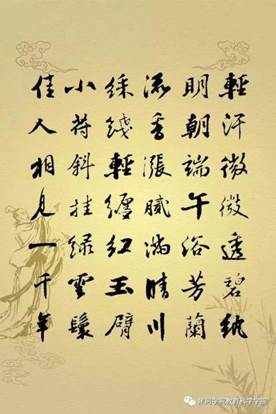 輕汗微微透碧紈
明朝端午浴芳蘭
流香漲膩滿晴川
綵綫輕纏紅玉臂
小符斜挂緑雲鬟
佳人相見一千年